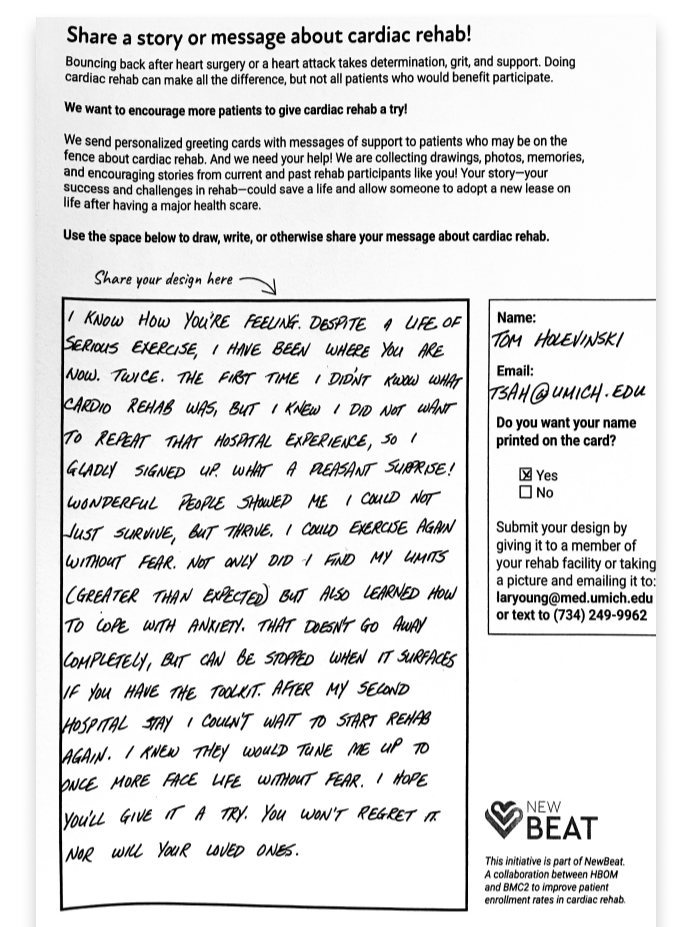 Share a story or message about cardiac rehab!
Bouncing back after heart surgery or a heart attack takes determination, grit, and support. Doing
cardiac rehab can make all the difference, but not all patients who would benefit participate.
We want to encourage more patients to give cardiac rehab a try!
We send personalized greeting cards with messages of support to patients who may be on the
fence about cardiac rehab. And we need your help! We are collecting drawings, photos, memories,
and encouraging stories from current and past rehab participants like you! Your story—your
success and challenges in rehab—could save a life and allow someone to adopt a new lease on
life after having a major health scare.
Use the space below to draw, write, or otherwise share your message about cardiac rehab.
Share your design here
I KNOW HOW YOU'RE FEELING. DESPITE A LIFE OF
SERIOUS EXERCISE, I HAVE BEEN WHERE YOU ARE
NOW. TWICE. THE FIRST TIME I DIDN'T KNOW WHAT
CARDIO REHAB WAS, BUT I KNEW I DID NOT WANT
TO REPEAT THAT HOSPITAL EXPERIENCE, SO I
GLADLY SIGNED UP. WHAT A PLEASANT SURPRISE!
WONDERFUL PEOPLE SHOWED ME I COULD NOT
JUST SURVIVE, BUT THRIVE. I COULD EXERCISE AGAIN
WITHOUT FEAR. NOT ONLY DID I FIND MY LIMITS
(GREATER THAN EXPECTED) BUT ALSO LEARNED HOW
TO COPE WITH ANXIETY. THAT DOESN'T GO AWAY
COMPLETELY, BUT CAN BE STOPPED WHEN IT SURFACES
IF YOU HAVE THE TOOLKIT. AFTER MY SECOND
HOSPITAL STAY I COULN'T WAIT TO START REHAB
AGAIN. I KNEW THEY WOULD TUNE ME UP TO
ONCE MORE FACE LIFE WITHOUT FEAR. I HOPE
YOU'LL GIVE IT A TRY. YOU WON'T REGRET IT.
NOR WILL YOUR LOVED ONES.
Name:
TOM HOLEVINSKI
Email:
TSAH@UMICH.EDU
Do you want your name
printed on the card?
Yes
No
Submit your design by
giving it to a member of
your rehab facility or taking
a picture and emailing it to:
laryoung@med.umich.edu
or text to (734) 249-9962
NEW
BEAT
This initiative is part of NewBeat.
A collaboration between HBOM
and BMC2 to improve patient
enrollment rates in cardiac rehab.